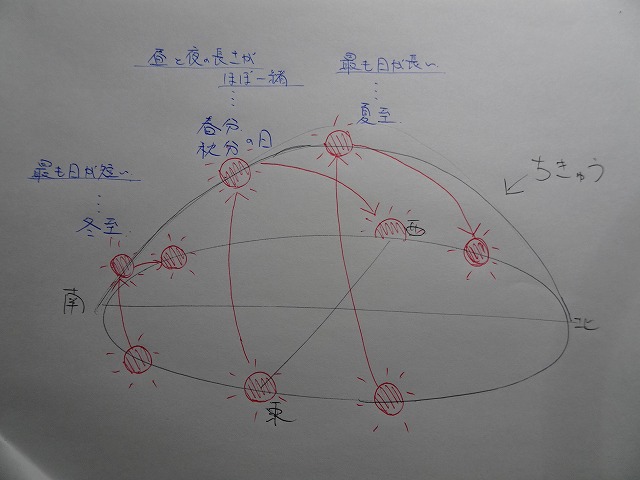 昼と夜の長さが
ほぼ一緒
春分
秋分の日
最も日が長い
夏至
最も日が短い
冬至
ちきゅう
南
西
北
東